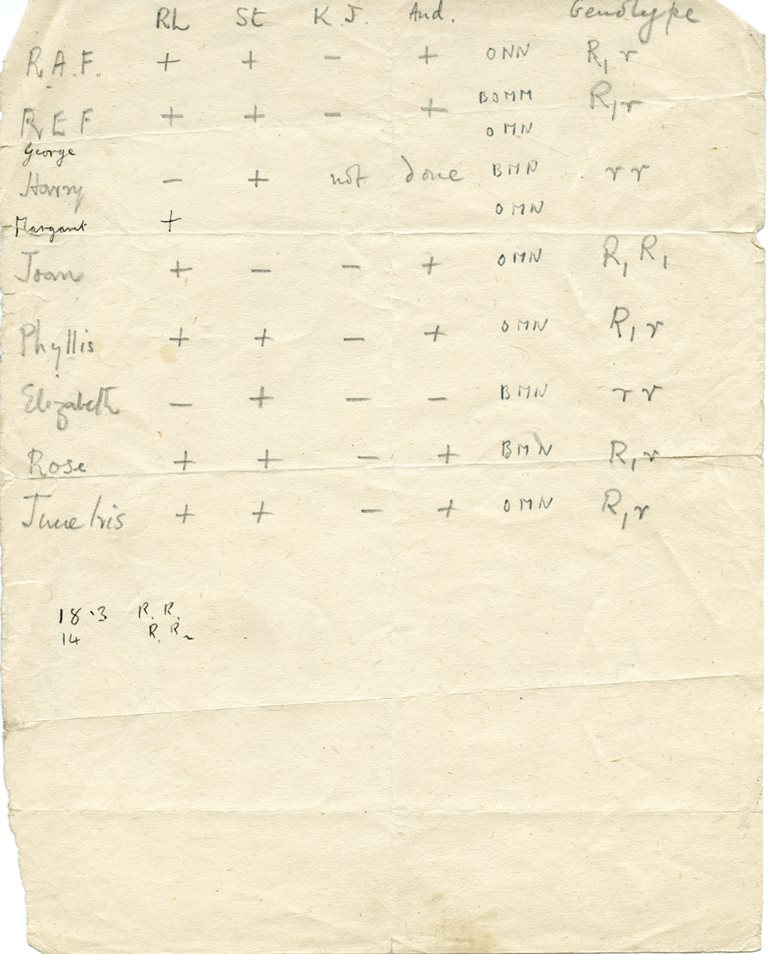 Rh St K.J. And. Genotype
R.A.F. + + - + ONN R₁r
BOMM
R E F + + - + R₁r
OMN
George
Harry - + not done BMN rr
Margaret + OMN
Joan + - - + OMN R₁R₁
Phyllis + + - + OMN R₁r
Elizabeth - + - - BMN rr
Rose + + - + BMN R₁r
June Iris + + - + OMN R₁r
18.3 R₁R₁
14 R₁R₂